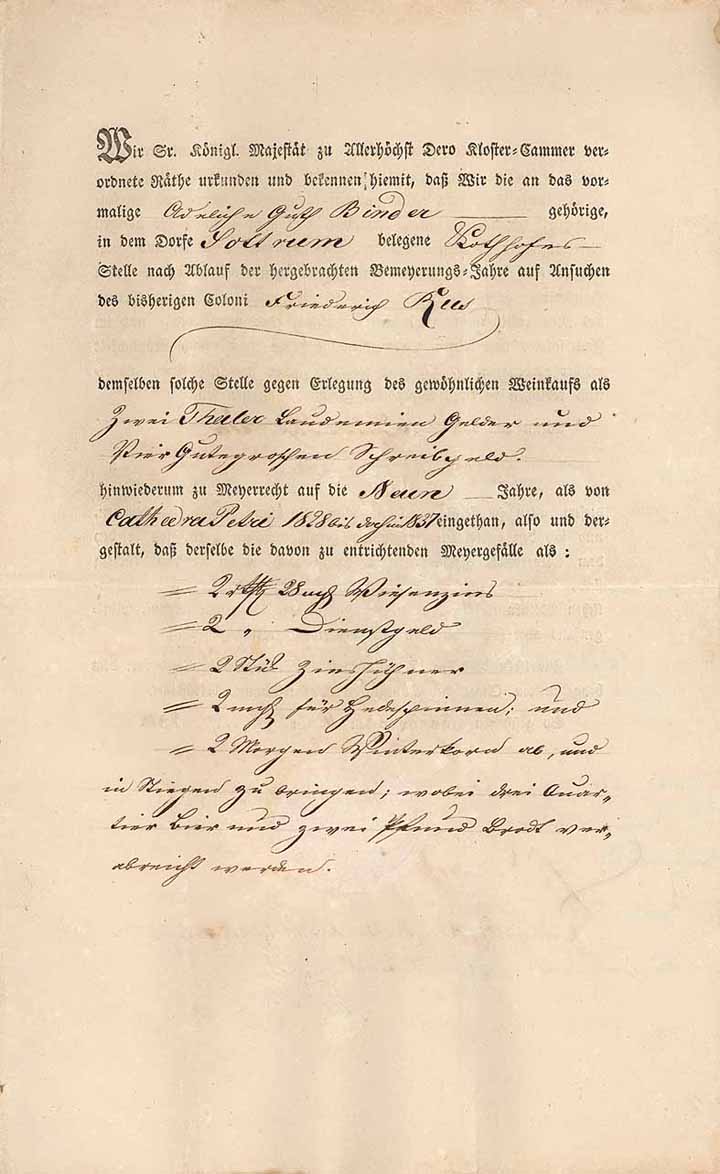 Wir Sr. Königl. Majestät zu Allerhöchst Dero Kloster-Cammer ver-
ordnete Räthe urkunden und bekennen hiemit, daß Wir die an das vor-
malige Adeliche Guth Binder gehörige,
in dem Dorfe Sottrum belegene Kothhofes
Stelle nach Ablauf der hergebrachten Bemeyerungs-Jahre auf Ansuchen
des bisherigen Coloni Friederich
demselben solche Stelle gegen Erlegung des gewöhnlichen Weinkaufs als
Zwei Thaler Laudemien Gelder und
Vier Gutegroschen Schreibgeld.
hinwiederum zu Meyerrecht auf die Neun Jahre, als von
Cathedra Petri 1828 bis dahin 1837 eingethan, also und der-
gestalt, daß derselbe die davon zu entrichtenden Meyergefälle als:
= 2 Wiesenzins
= 2 " Dienstgeld
= 2 Stück Zinshühner
= 2 für Hedespinnen; und
= 2 Morgen Winterkorn ab, und
in Stiegen zu bringen; wobei drei Quar-
tier Bier und zwei Pfund Brodt ver-
abreicht werden.